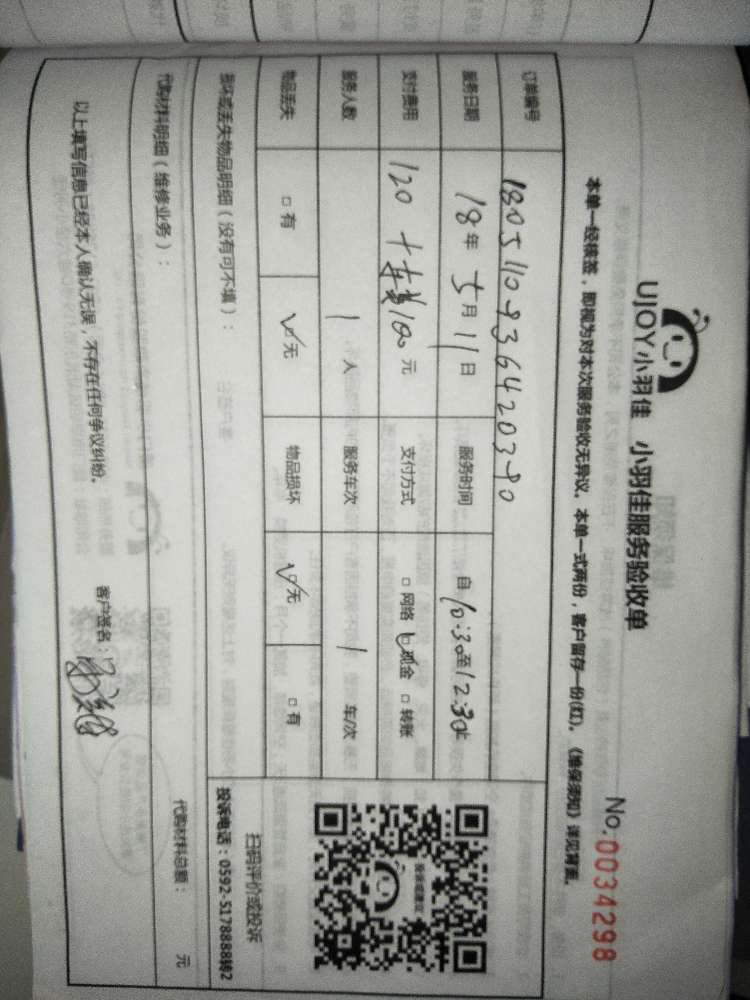 UJOY小羽佳 小羽佳服务验收单
No.0034298
本单一经核签，即视为对本次服务验收无异议。本单一式两份，客户留存一份(红)。《维保须知》详见背面。
订单编号 1805110936420390
服务日期 18年5月11日 服务时间 自10:30至12:30止
支付费用 120+车费10元 支付方式 □网络 ☑现金 □转账
服务人数 1人 服务车次 1车/次
物品丢失 □有 ☑无 物品损坏 ☑无 □有
扫码评价或投诉
投诉电话：0592-5178888转2
损坏或丢失物品明细（没有可不填）：
代购材料明细（维修业务）： 代购材料总额： 元
以上填写信息已经本人确认无误，不存在任何争议纠纷。 客户签名：